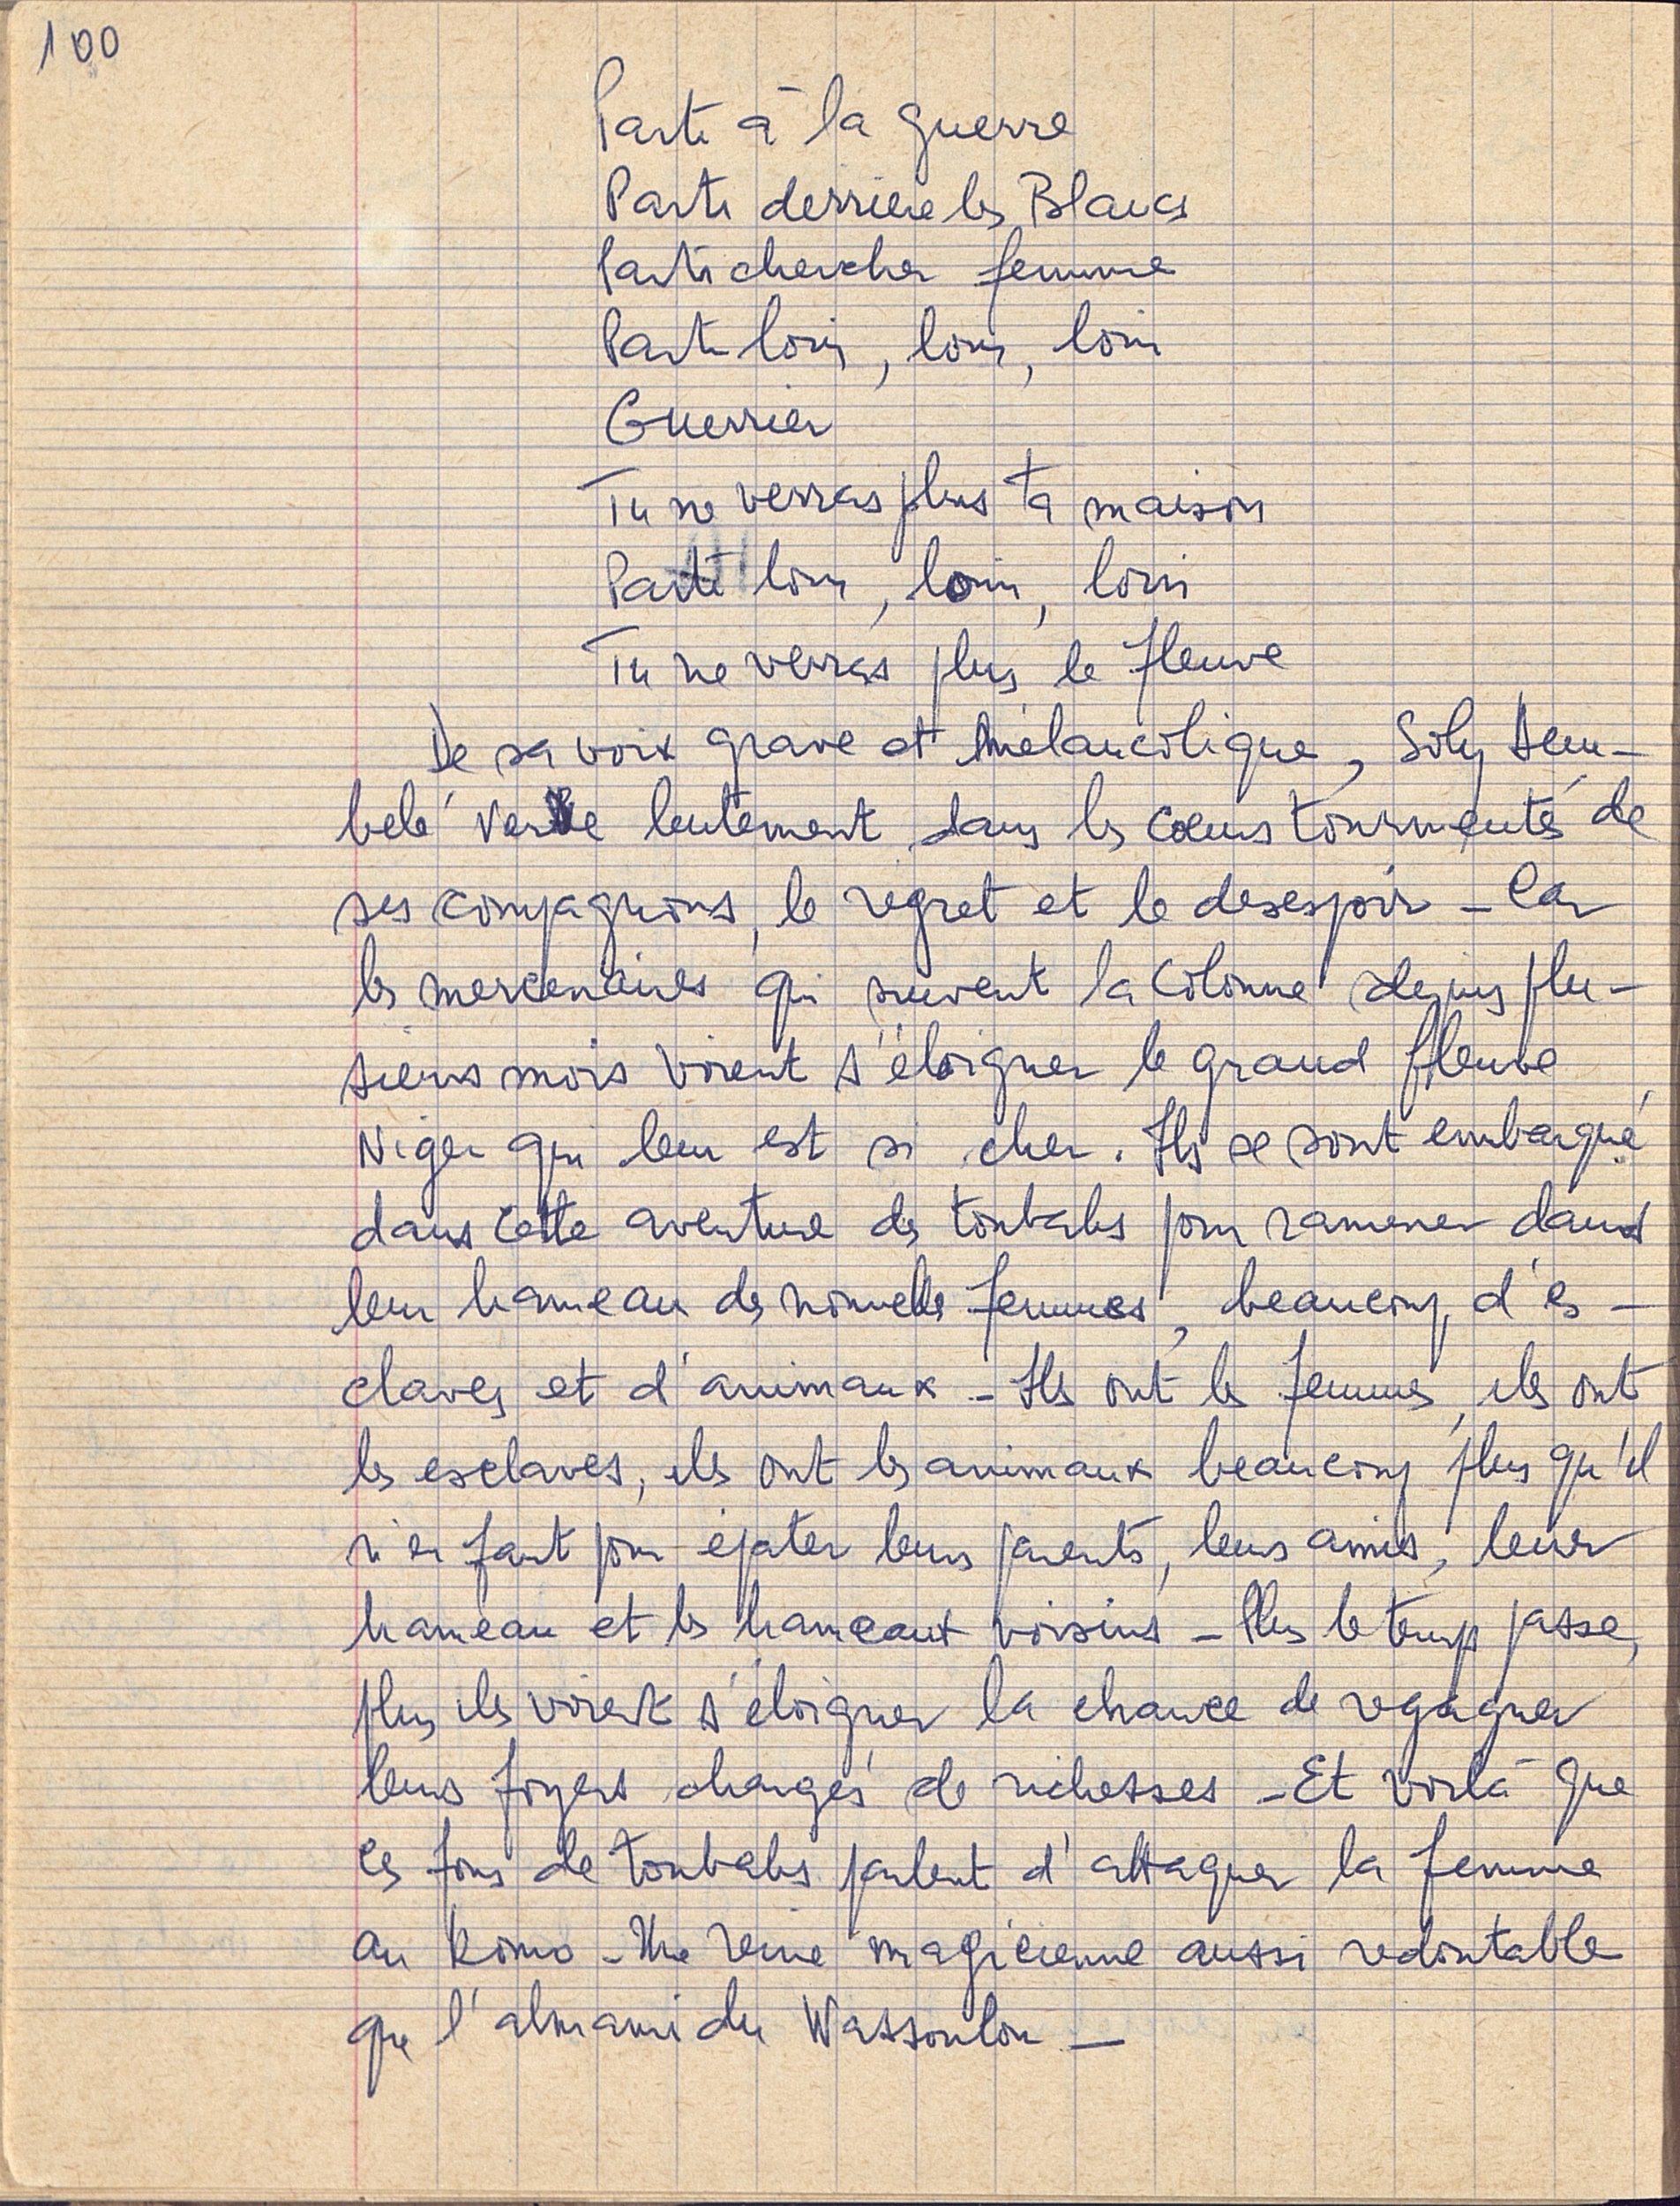 100
Parti à la guerre
Parti derrière les Blancs
Parti chercher femme
Parti loin, loin, loin
Guerrier
Tu ne verras plus ta maison
Parti loin, loin, loin
Tu ne verras plus le fleuve
De sa voix grave et mélancolique, Soly Dem-
belé verse lentement dans les cœurs tourmentés de
ses compagnons, le regret et le desespoir - Car
les mercenaires qui suivent la Colonne depuis plu-
sieurs mois voient s'éloigner le grand fleuve
Niger qui leur est si cher. Ils se sont embarqué
dans cette aventure des toubabs pour ramener dans
leur hameau de nouvelles femmes, beaucoup d'es-
claves et d'animaux - Ils ont les femmes, ils ont
les esclaves, ils ont les animaux beaucoup plus qu'il
n'en faut pour épater leurs parents, leurs amis, leur
hameau et les hameaux voisins - Plus le temps passe,
plus ils voient s'éloigner la chance de regagner
leurs foyers chargés de richesses - Et voilà que
ces fous de toubabs parlent d'attaquer la femme
au komo - Une reine magicienne aussi redoutable
que l'almami du Wassoulou -